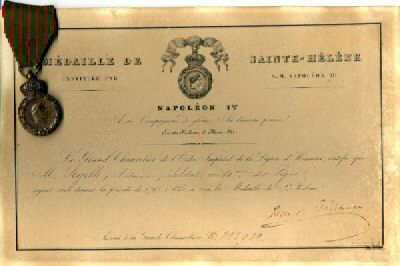 MÉDAILLE DE SAINTE-HÉLÈNE
INSTITUÉE PAR S.M. NAPOLÉON III
NAPOLÉON 1er
A ses Compagnons de gloire, Sa dernière pensée!
Sainte-Hélène, 5 Mai 1821
Le Grand Chancelier de l'Ordre Impérial de la Légion d'Honneur, certifie que
M. Soldat au de Ligne
ayant servi durant la période de 1792 à 1815, a reçu la Médaille de Ste Hélène.
Inscrit à la Grande Chancellerie N°